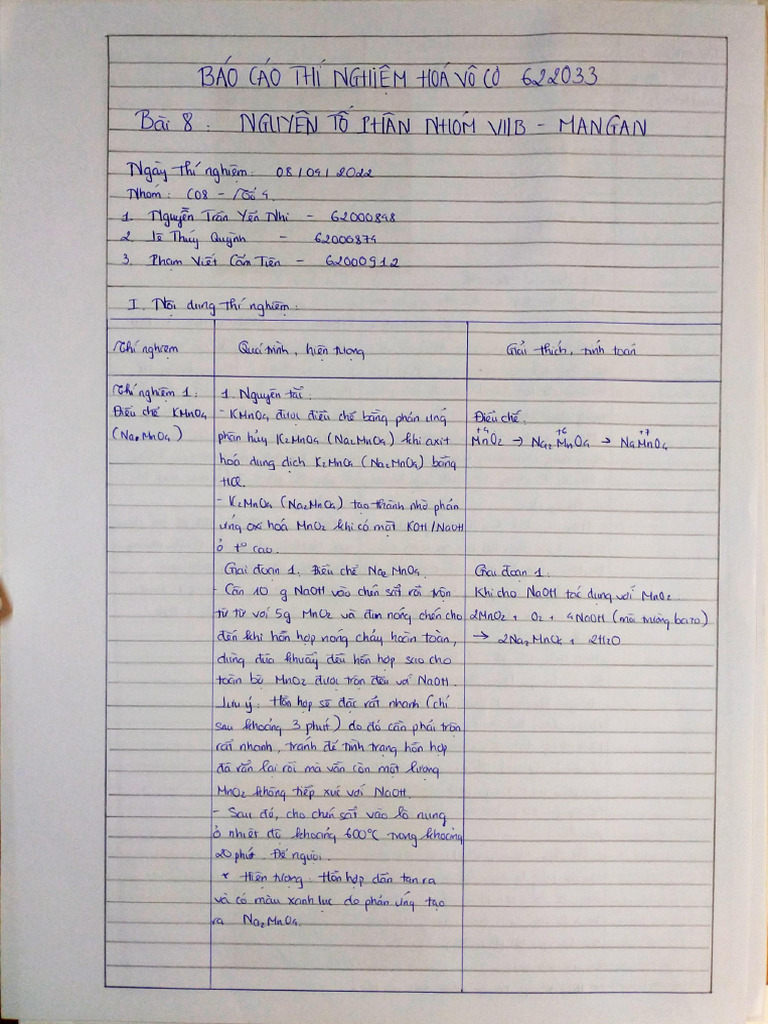 BÁO CÁO THÍ NGHIỆM HOÁ VÔ CƠ 622033
Bài 8: NGUYÊN TỐ PHÂN NHÓM VIIB - MANGAN
Ngày thí nghiệm: 08/09/2022
Nhóm: C08 - Tổ 4
1. Nguyễn Trần Yến Nhi - 62000848
2. Lê Thúy Quỳnh - 62000874
3. Phạm Viết Cẩm Tiên - 62000912
I. Nội dung thí nghiệm:
Thí nghiệm
Quá trình, hiện tượng
Giải thích, tính toán
Thí nghiệm 1:
Điều chế KMnO4
(NaMnO4)
1. Nguyên tắc:
- KMnO4 được điều chế bằng phản ứng
phân hủy K2MnO4 (Na2MnO4) khi axit
hoá dung dịch K2MnO4 (Na2MnO4) bằng
HCl.
- K2MnO4 (Na2MnO4) tạo thành nhờ phản
ứng oxi hoá MnO2 khi có mặt KOH/NaOH
ở t° cao.
Giai đoạn 1: Điều chế Na2MnO4.
- Cân 10 g NaOH vào chén sắt rồi trộn
từ từ với 5g MnO2 và đun nóng chén cho
đến khi hỗn hợp nóng chảy hoàn toàn,
dùng đũa khuấy đều hỗn hợp sao cho
toàn bộ MnO2 được trộn đều với NaOH.
Lưu ý: Hỗn hợp sẽ đặc rất nhanh (chỉ
sau khoảng 3 phút) do đó cần phải trộn
rất nhanh, tránh để tình trạng hỗn hợp
đã rắn lại rồi mà vẫn còn một lượng
MnO2 không tiếp xúc với NaOH.
- Sau đó, cho chén sắt vào lò nung
ở nhiệt độ khoảng 600°C trong khoảng
20 phút. Để nguội.
* Hiện tượng: Hỗn hợp dần tan ra
và có màu xanh lục do phản ứng tạo
ra Na2MnO4.
Điều chế:
+4 +6 +7
MnO2 → Na2MnO4 → NaMnO4
Giai đoạn 1:
Khi cho NaOH tác dụng với MnO2
2MnO2 + O2 + 4NaOH (môi trường bazơ)
→ 2Na2MnO4 + 2H2O